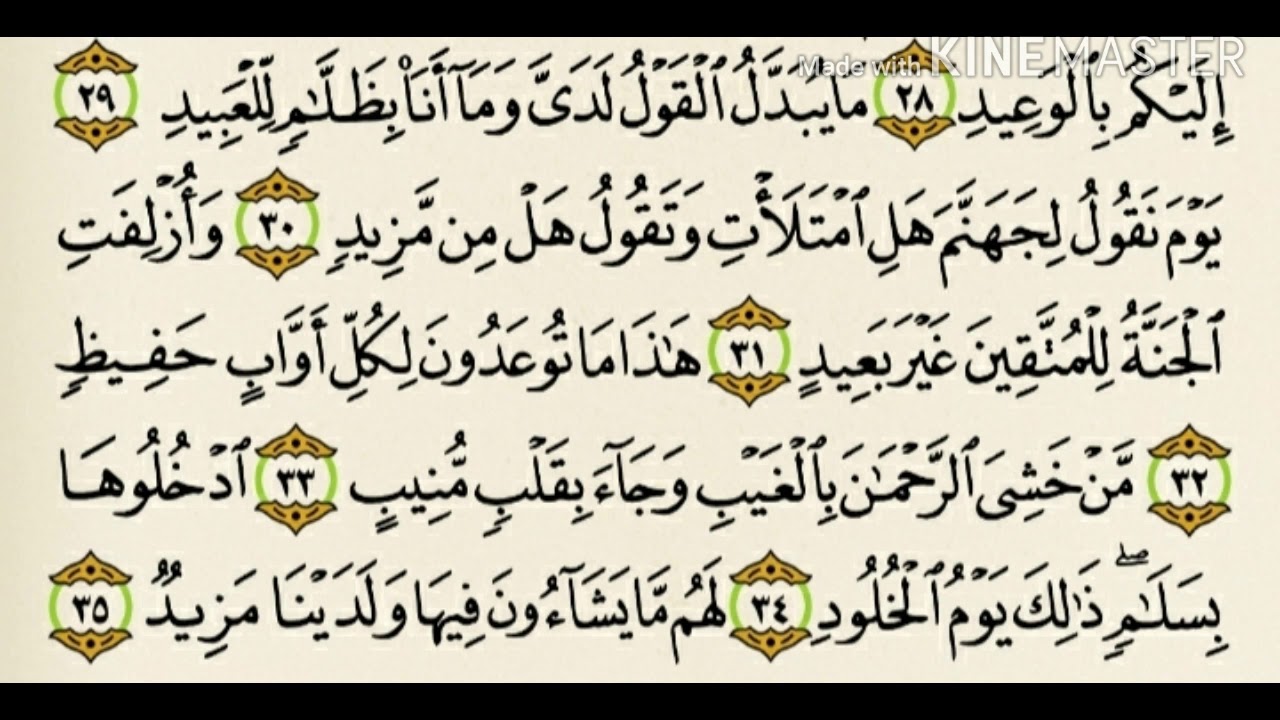 Made with KINEMASTER
إِلَيْكُم بِٱلْوَعِيدِ ٢٨ مَا يُبَدَّلُ ٱلْقَوْلُ لَدَىَّ وَمَآ أَنَا۠ بِظَلَّـٰمٍ لِّلْعَبِيدِ ٢٩
يَوْمَ نَقُولُ لِجَهَنَّمَ هَلِ ٱمْتَلَأْتِ وَتَقُولُ هَلْ مِن مَّزِيدٍ ٣٠ وَأُزْلِفَتِ
ٱلْجَنَّةُ لِلْمُتَّقِينَ غَيْرَ بَعِيدٍ ٣١ هَـٰذَا مَا تُوعَدُونَ لِكُلِّ أَوَّابٍ حَفِيظٍ
٣٢ مَّنْ خَشِىَ ٱلرَّحْمَـٰنَ بِٱلْغَيْبِ وَجَآءَ بِقَلْبٍ مُّنِيبٍ ٣٣ ٱدْخُلُوهَا
بِسَلَـٰمٍ ۖ ذَٰلِكَ يَوْمُ ٱلْخُلُودِ ٣٤ لَهُم مَّا يَشَآءُونَ فِيهَا وَلَدَيْنَا مَزِيدٌ ٣٥